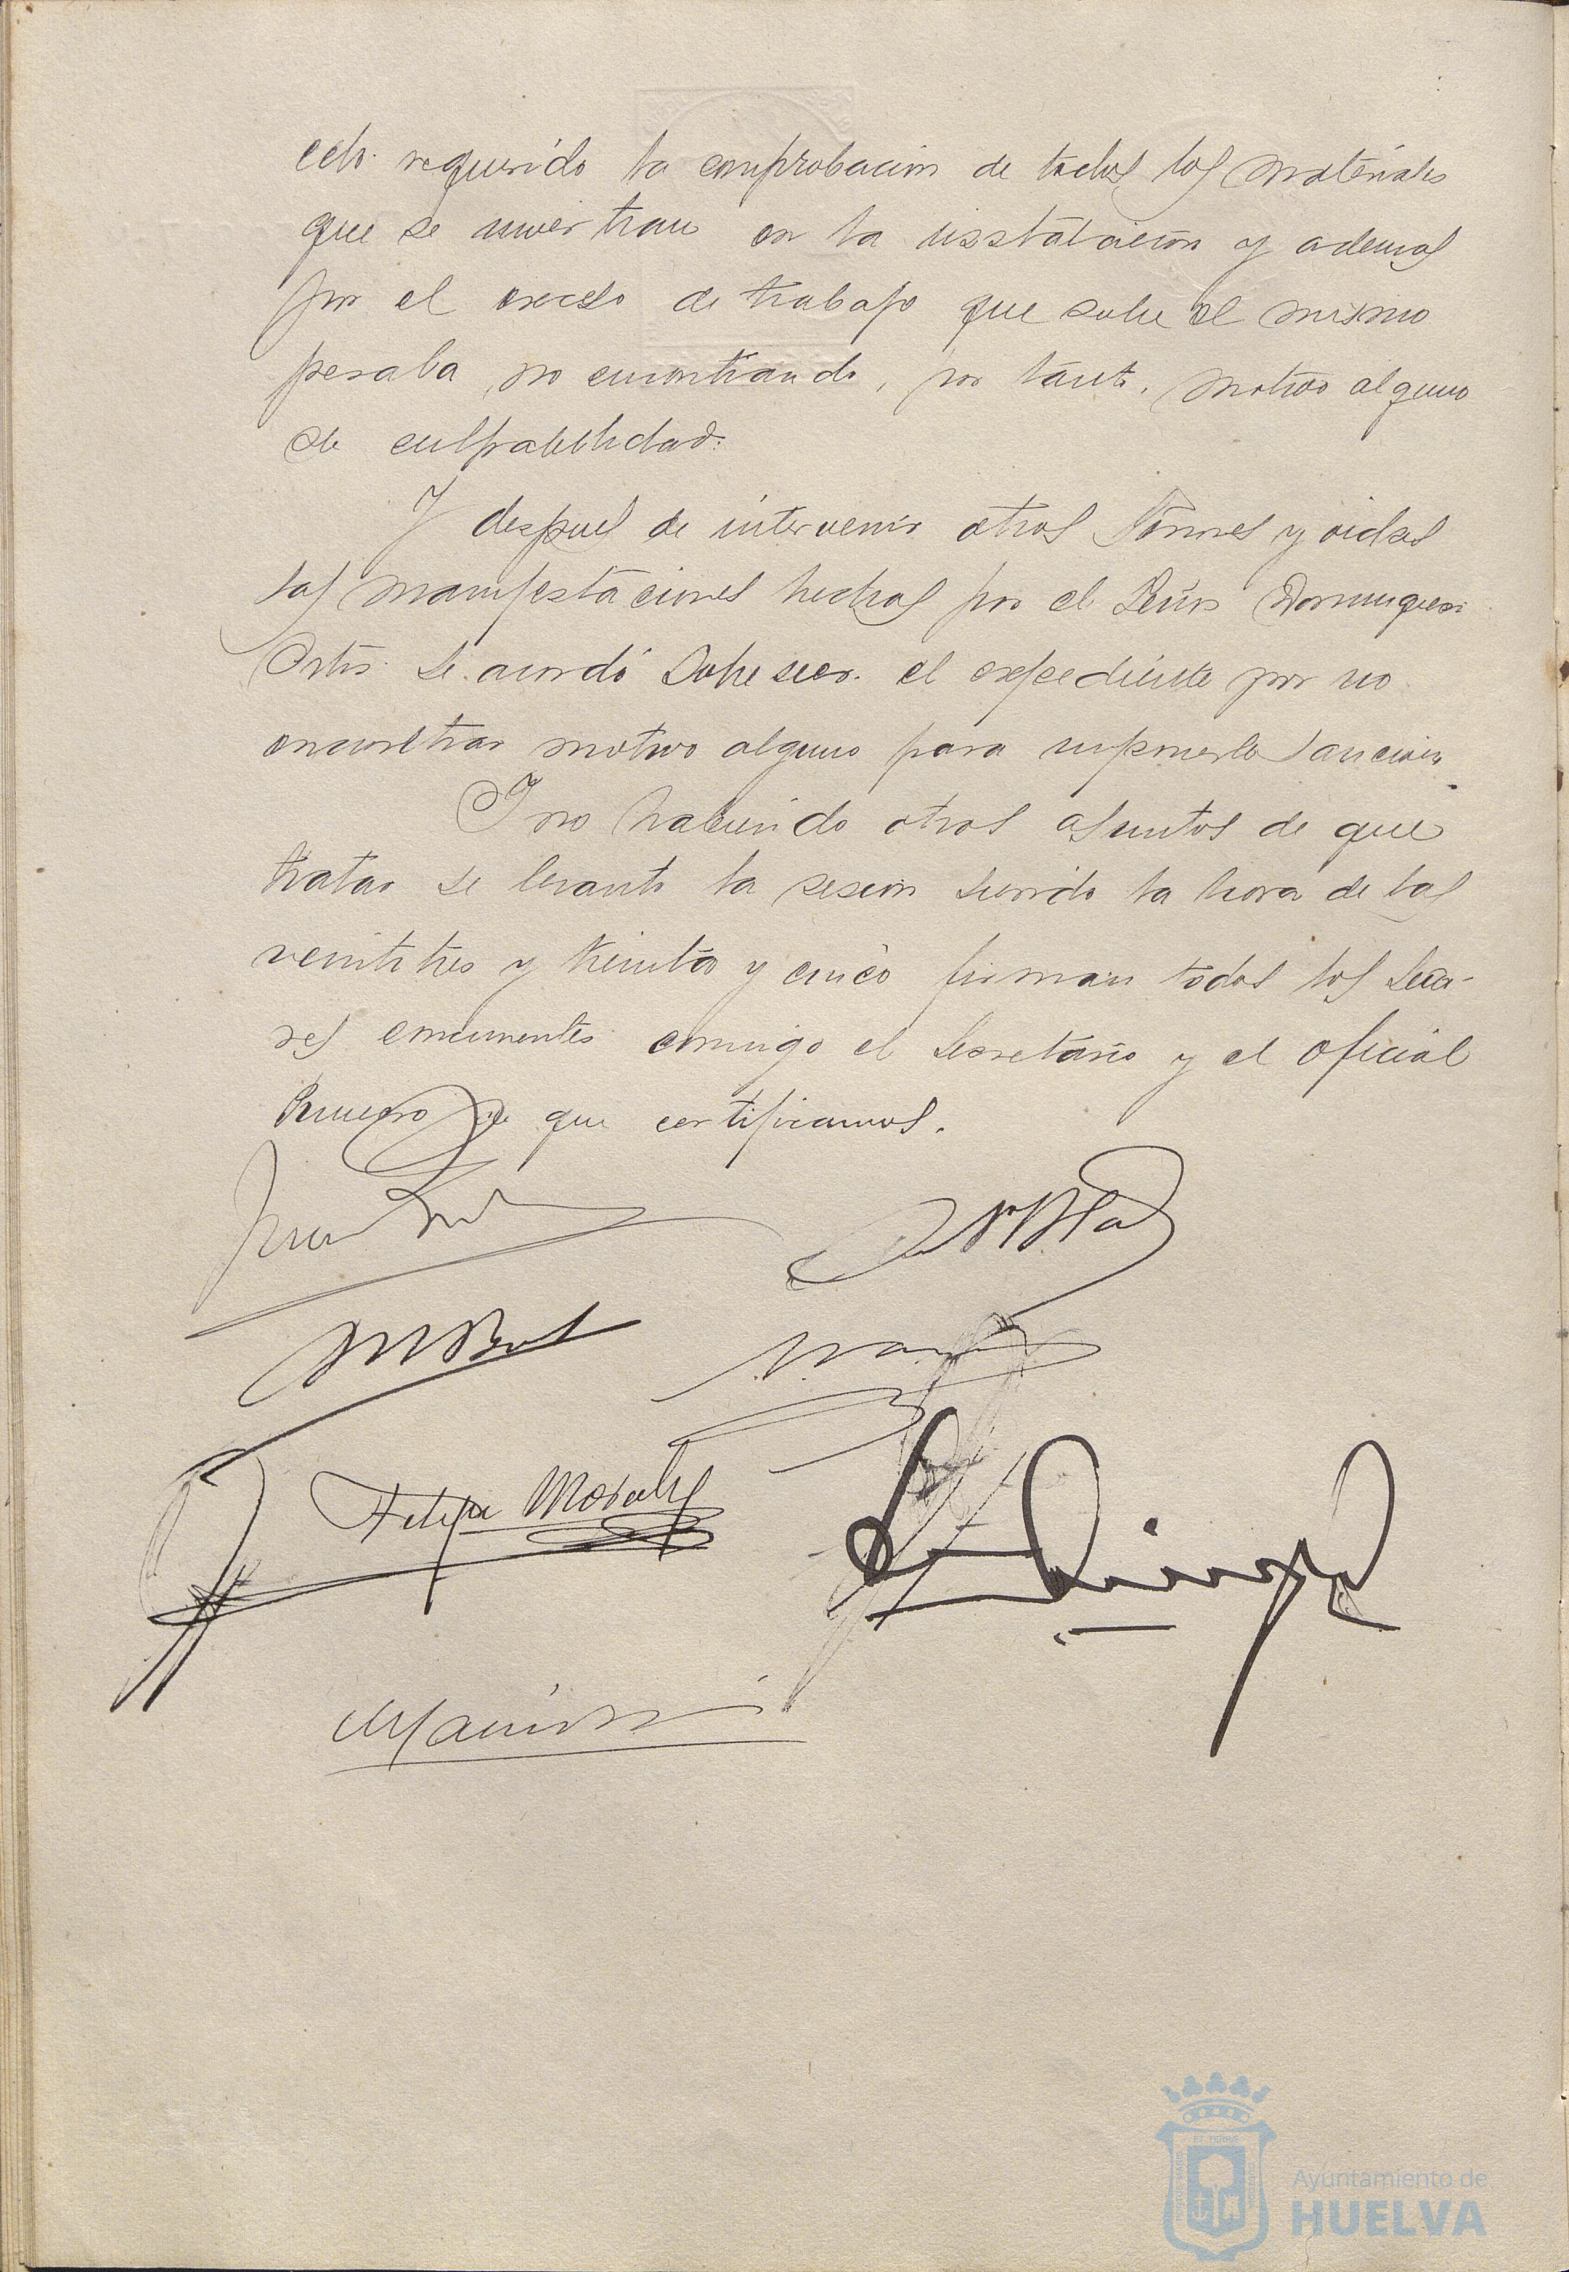 cito requerido la comprobacion de todos los materiales
que se inviertan en la instalacion y ademas
por el exceso de trabajo que sobre el mismo
pesaba, no encontrando, por tanto, motivo alguno
de culpabilidad.
Y despues de intervenir otros Señores y oidas
las manifestaciones hechas por el Señor Dominguez
Ortiz se acordó sobreseer el expediente por no
encontrar motivo alguno para imponerle sancion.
Y no habiendo otros asuntos de que
tratar se levanto la sesion siendo la hora de las
veintitres y treinta y cinco firman todos los Seño-
res concurrentes conmigo el Secretario y el oficial
Primero de que certificamos.
Felipe Morales
Ayuntamiento de
HUELVA